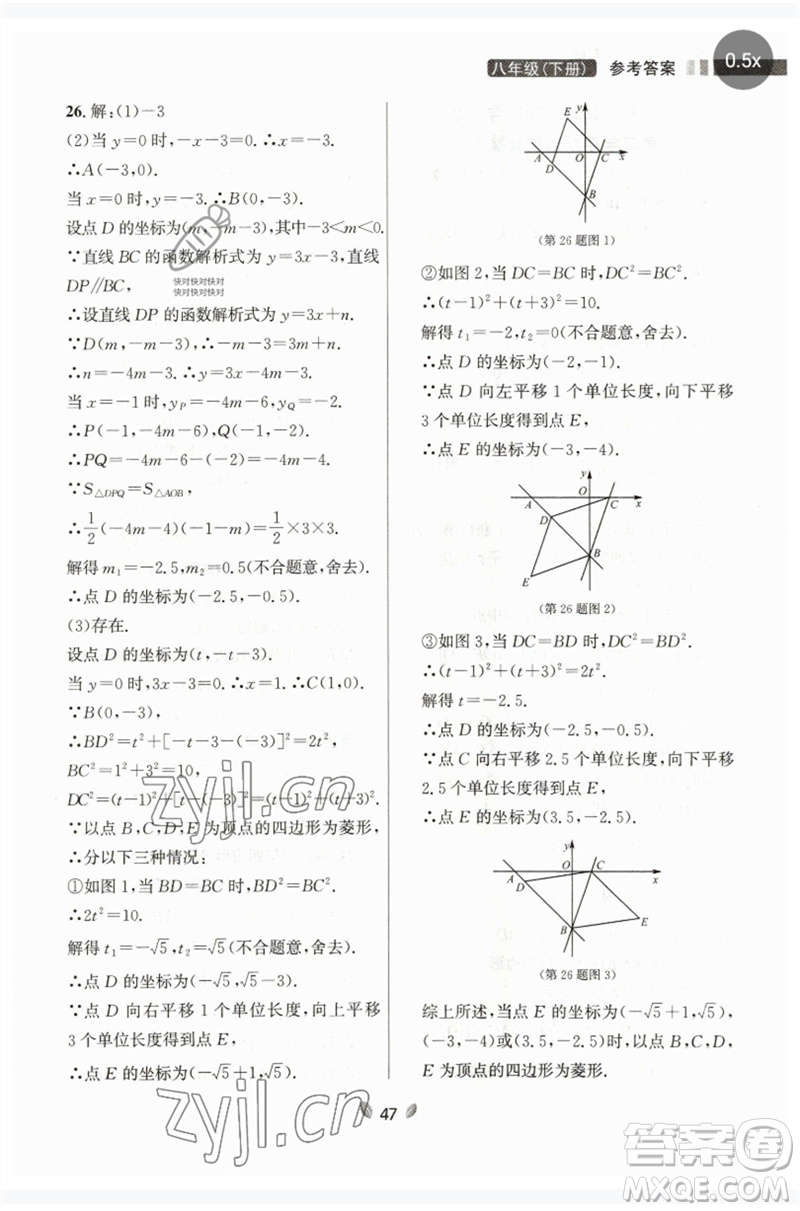 八年级(下册) 参考答案
0.5x
26. 解:(1)-3
(2)当 y=0 时,-x-3=0. ∴x=-3.
∴A(-3,0).
当 x=0 时,y=-3. ∴B(0,-3).
设点 D 的坐标为(m,-m-3),其中-3<m<0.
∵直线 BC 的函数解析式为 y=3x-3,直线
DP∥BC,
快对快对快对快对
快对快对快对快对
∴设直线 DP 的函数解析式为 y=3x+n.
∵D(m,-m-3),∴-m-3=3m+n.
∴n=-4m-3. ∴y=3x-4m-3.
当 x=-1 时,y_P=-4m-6,y_Q=-2.
∴P(-1,-4m-6),Q(-1,-2).
∴PQ=-4m-6-(-2)=-4m-4.
∵S△DPQ=S△AOB,
∴1/2(-4m-4)(-1-m)=1/2×3×3.
解得 m₁=-2.5,m₂=0.5(不合题意,舍去).
∴点 D 的坐标为(-2.5,-0.5).
(3)存在.
设点 D 的坐标为(t,-t-3).
当 y=0 时,3x-3=0. ∴x=1. ∴C(1,0).
∵B(0,-3),
∴BD²=t²+[-t-3-(-3)]²=2t²,
BC²=1²+3²=10,
DC²=(t-1)²+[-t-(-3)]²=(t-1)²+(t+3)².
∵以点 B,C,D,E 为顶点的四边形为菱形,
∴分以下三种情况:
①如图 1,当 BD=BC 时,BD²=BC².
∴2t²=10.
解得 t₁=-√5,t₂=√5(不合题意,舍去).
∴点 D 的坐标为(-√5,√5-3).
∵点 D 向右平移 1 个单位长度,向上平移
3 个单位长度得到点 E,
∴点 E 的坐标为(-√5+1,√5).
y
E
A
O
C
x
D
B
(第 26 题图 1)
②如图 2,当 DC=BC 时,DC²=BC².
∴(t-1)²+(t+3)²=10.
解得 t₁=-2,t₂=0(不合题意,舍去).
∴点 D 的坐标为(-2,-1).
∵点 D 向左平移 1 个单位长度,向下平移
3 个单位长度得到点 E,
∴点 E 的坐标为(-3,-4).
y
A
O
C
x
D
B
E
(第 26 题图 2)
③如图 3,当 DC=BD 时,DC²=BD².
∴(t-1)²+(t+3)²=2t².
解得 t=-2.5.
∴点 D 的坐标为(-2.5,-0.5).
∵点 C 向右平移 2.5 个单位长度,向下平移
2.5 个单位长度得到点 E,
∴点 E 的坐标为(3.5,-2.5).
y
A
O
C
x
D
E
B
(第 26 题图 3)
综上所述,当点 E 的坐标为(-√5+1,√5),
(-3,-4)或(3.5,-2.5)时,以点 B,C,D,
E 为顶点的四边形为菱形.
zyjl.cn
zyjl.cn
47
答案圈
MXQE.COM